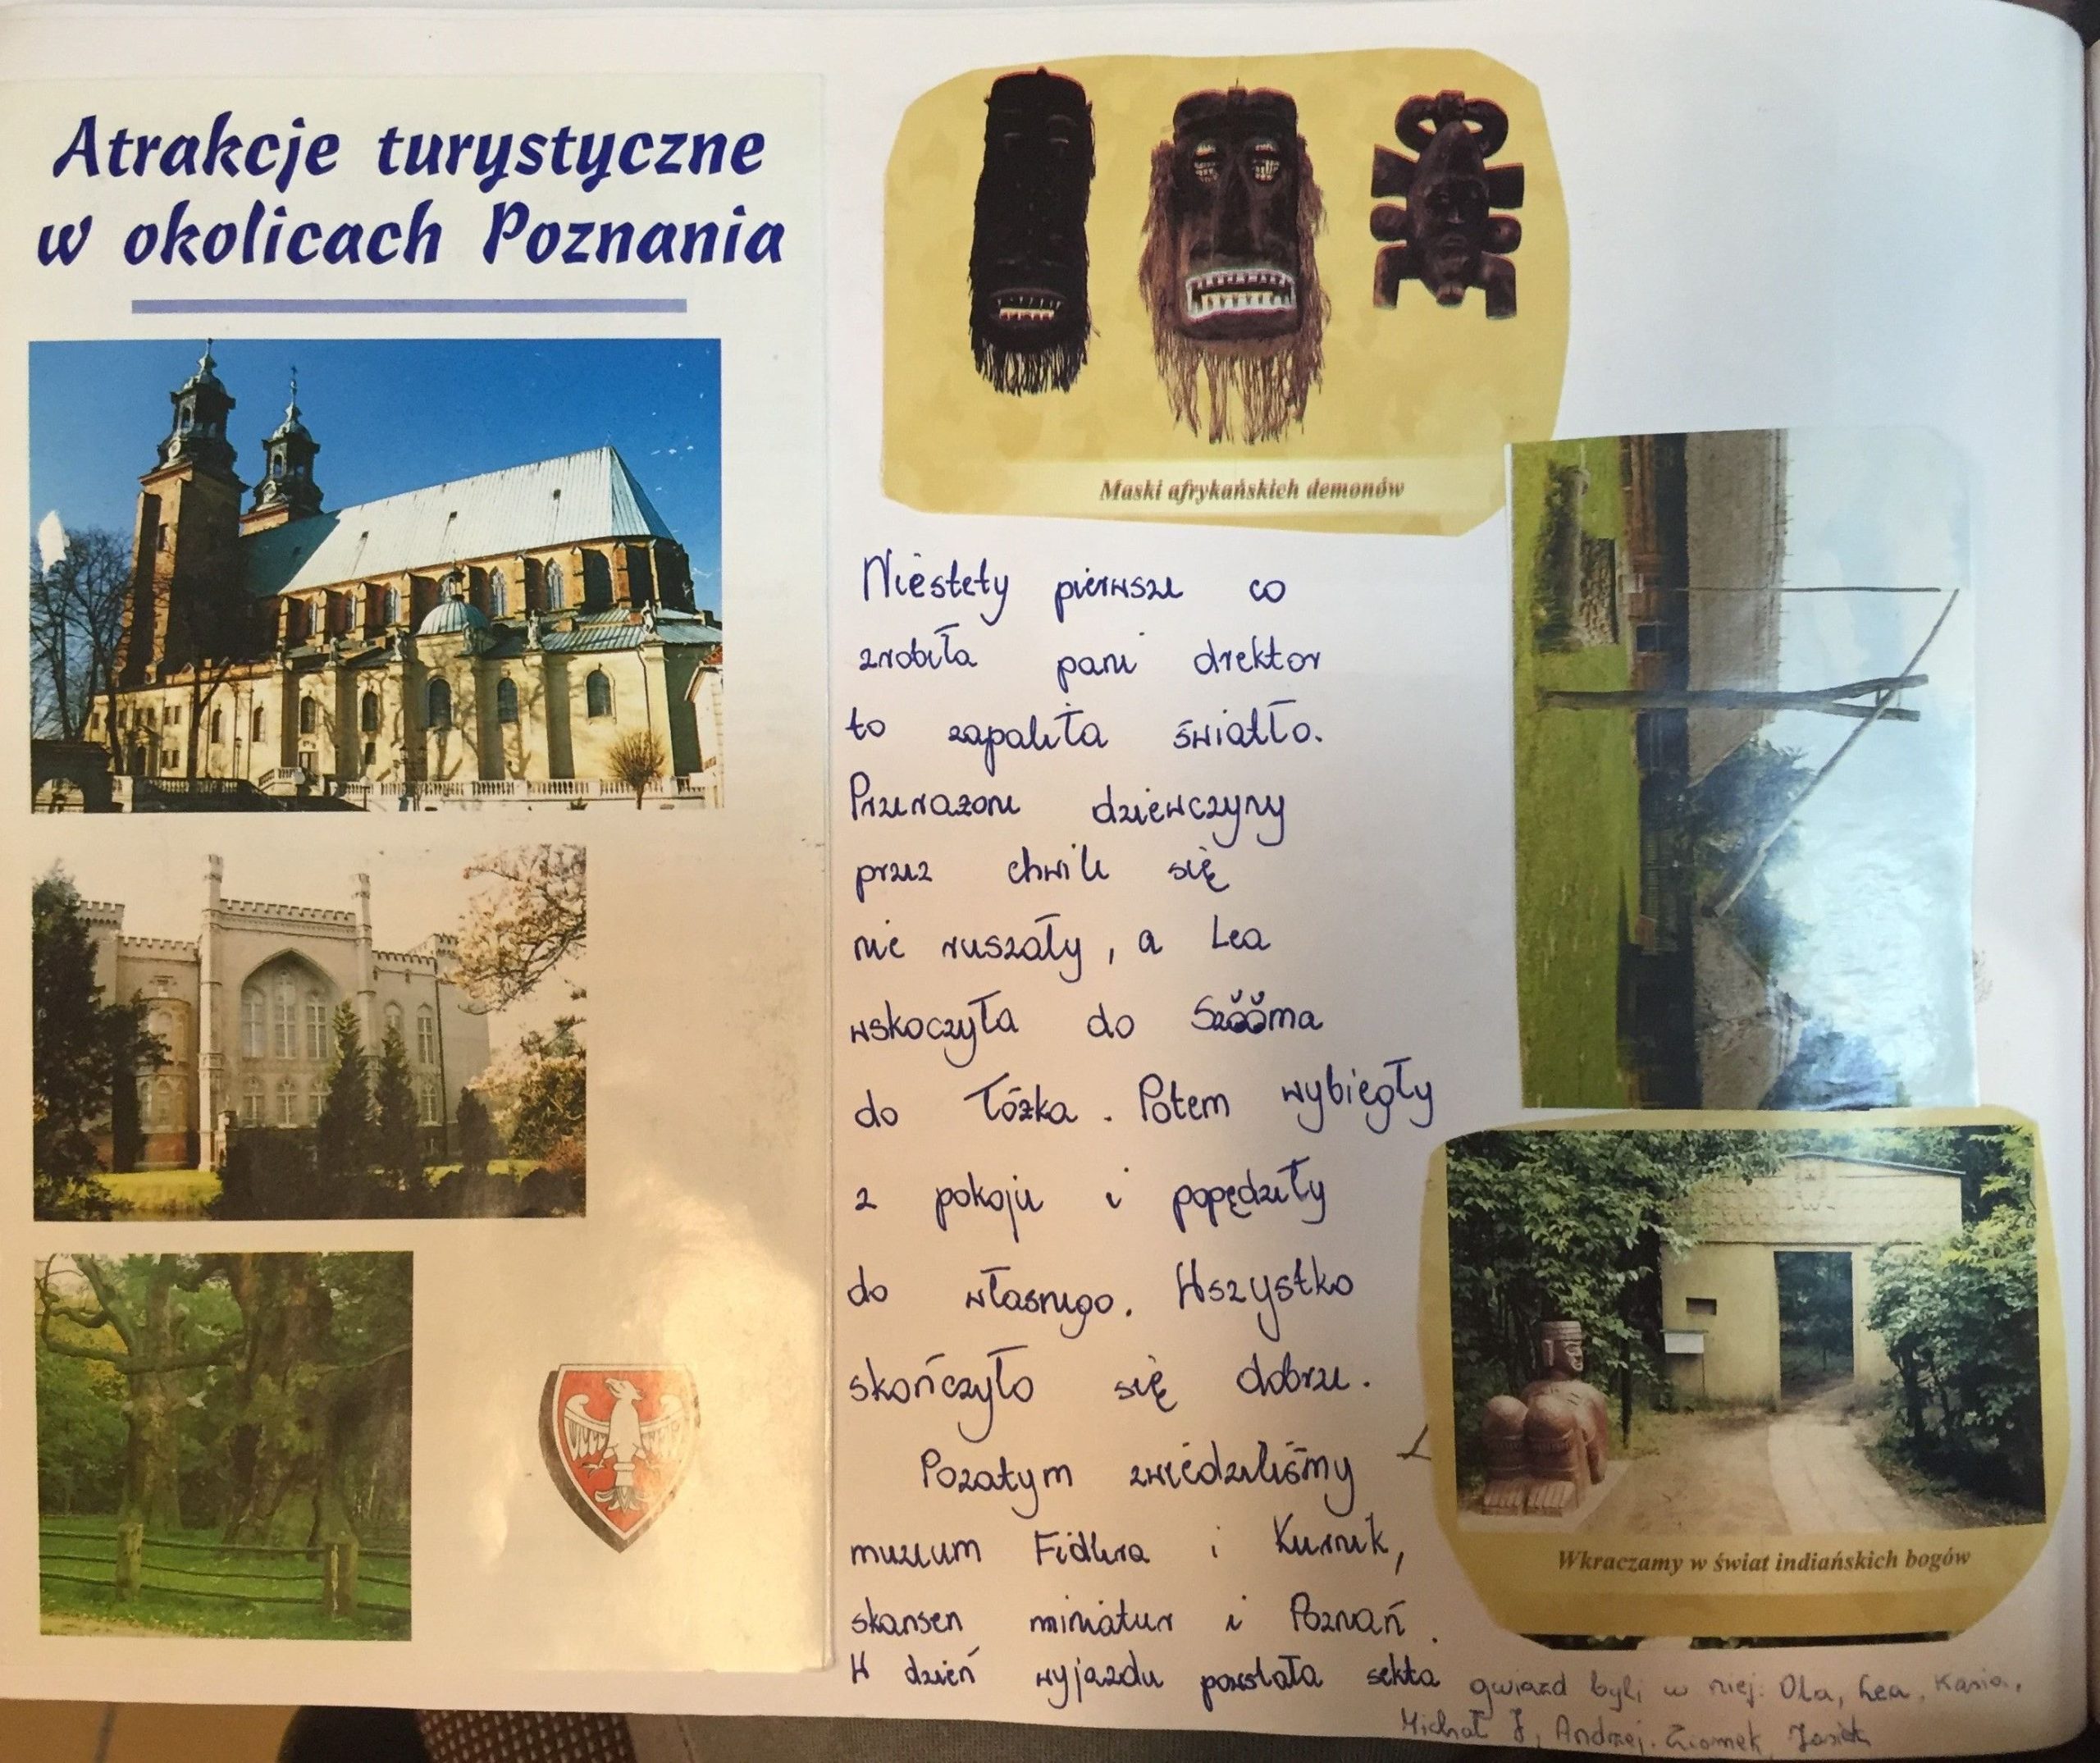 Atrakcje turystyczne
w okolicach Poznania
Maski afrykańskich demonów
Niestety pierwsze co
zrobiła pani drektor
to zapaliła światło.
Przerażone dziewczyny
przez chwile się
nie ruszały, a Lea
wskoczyła do Szŏŏma
do łóżka. Potem wybiegły
z pokoju i popędziły
do własnego. Wszystko
skończyło się dobrze.
Pozatym zwiedziliśmy
muzeum Fidlera i Kurnik,
skansen miniatur i Poznań.
W dzień wyjazdu powstała sekta gwiazd byli w niej: Ola, Lea, Kasia,
Michał J, Andrzej, Ziomek, Jasiek
Wkraczamy w świat indiańskich bogów